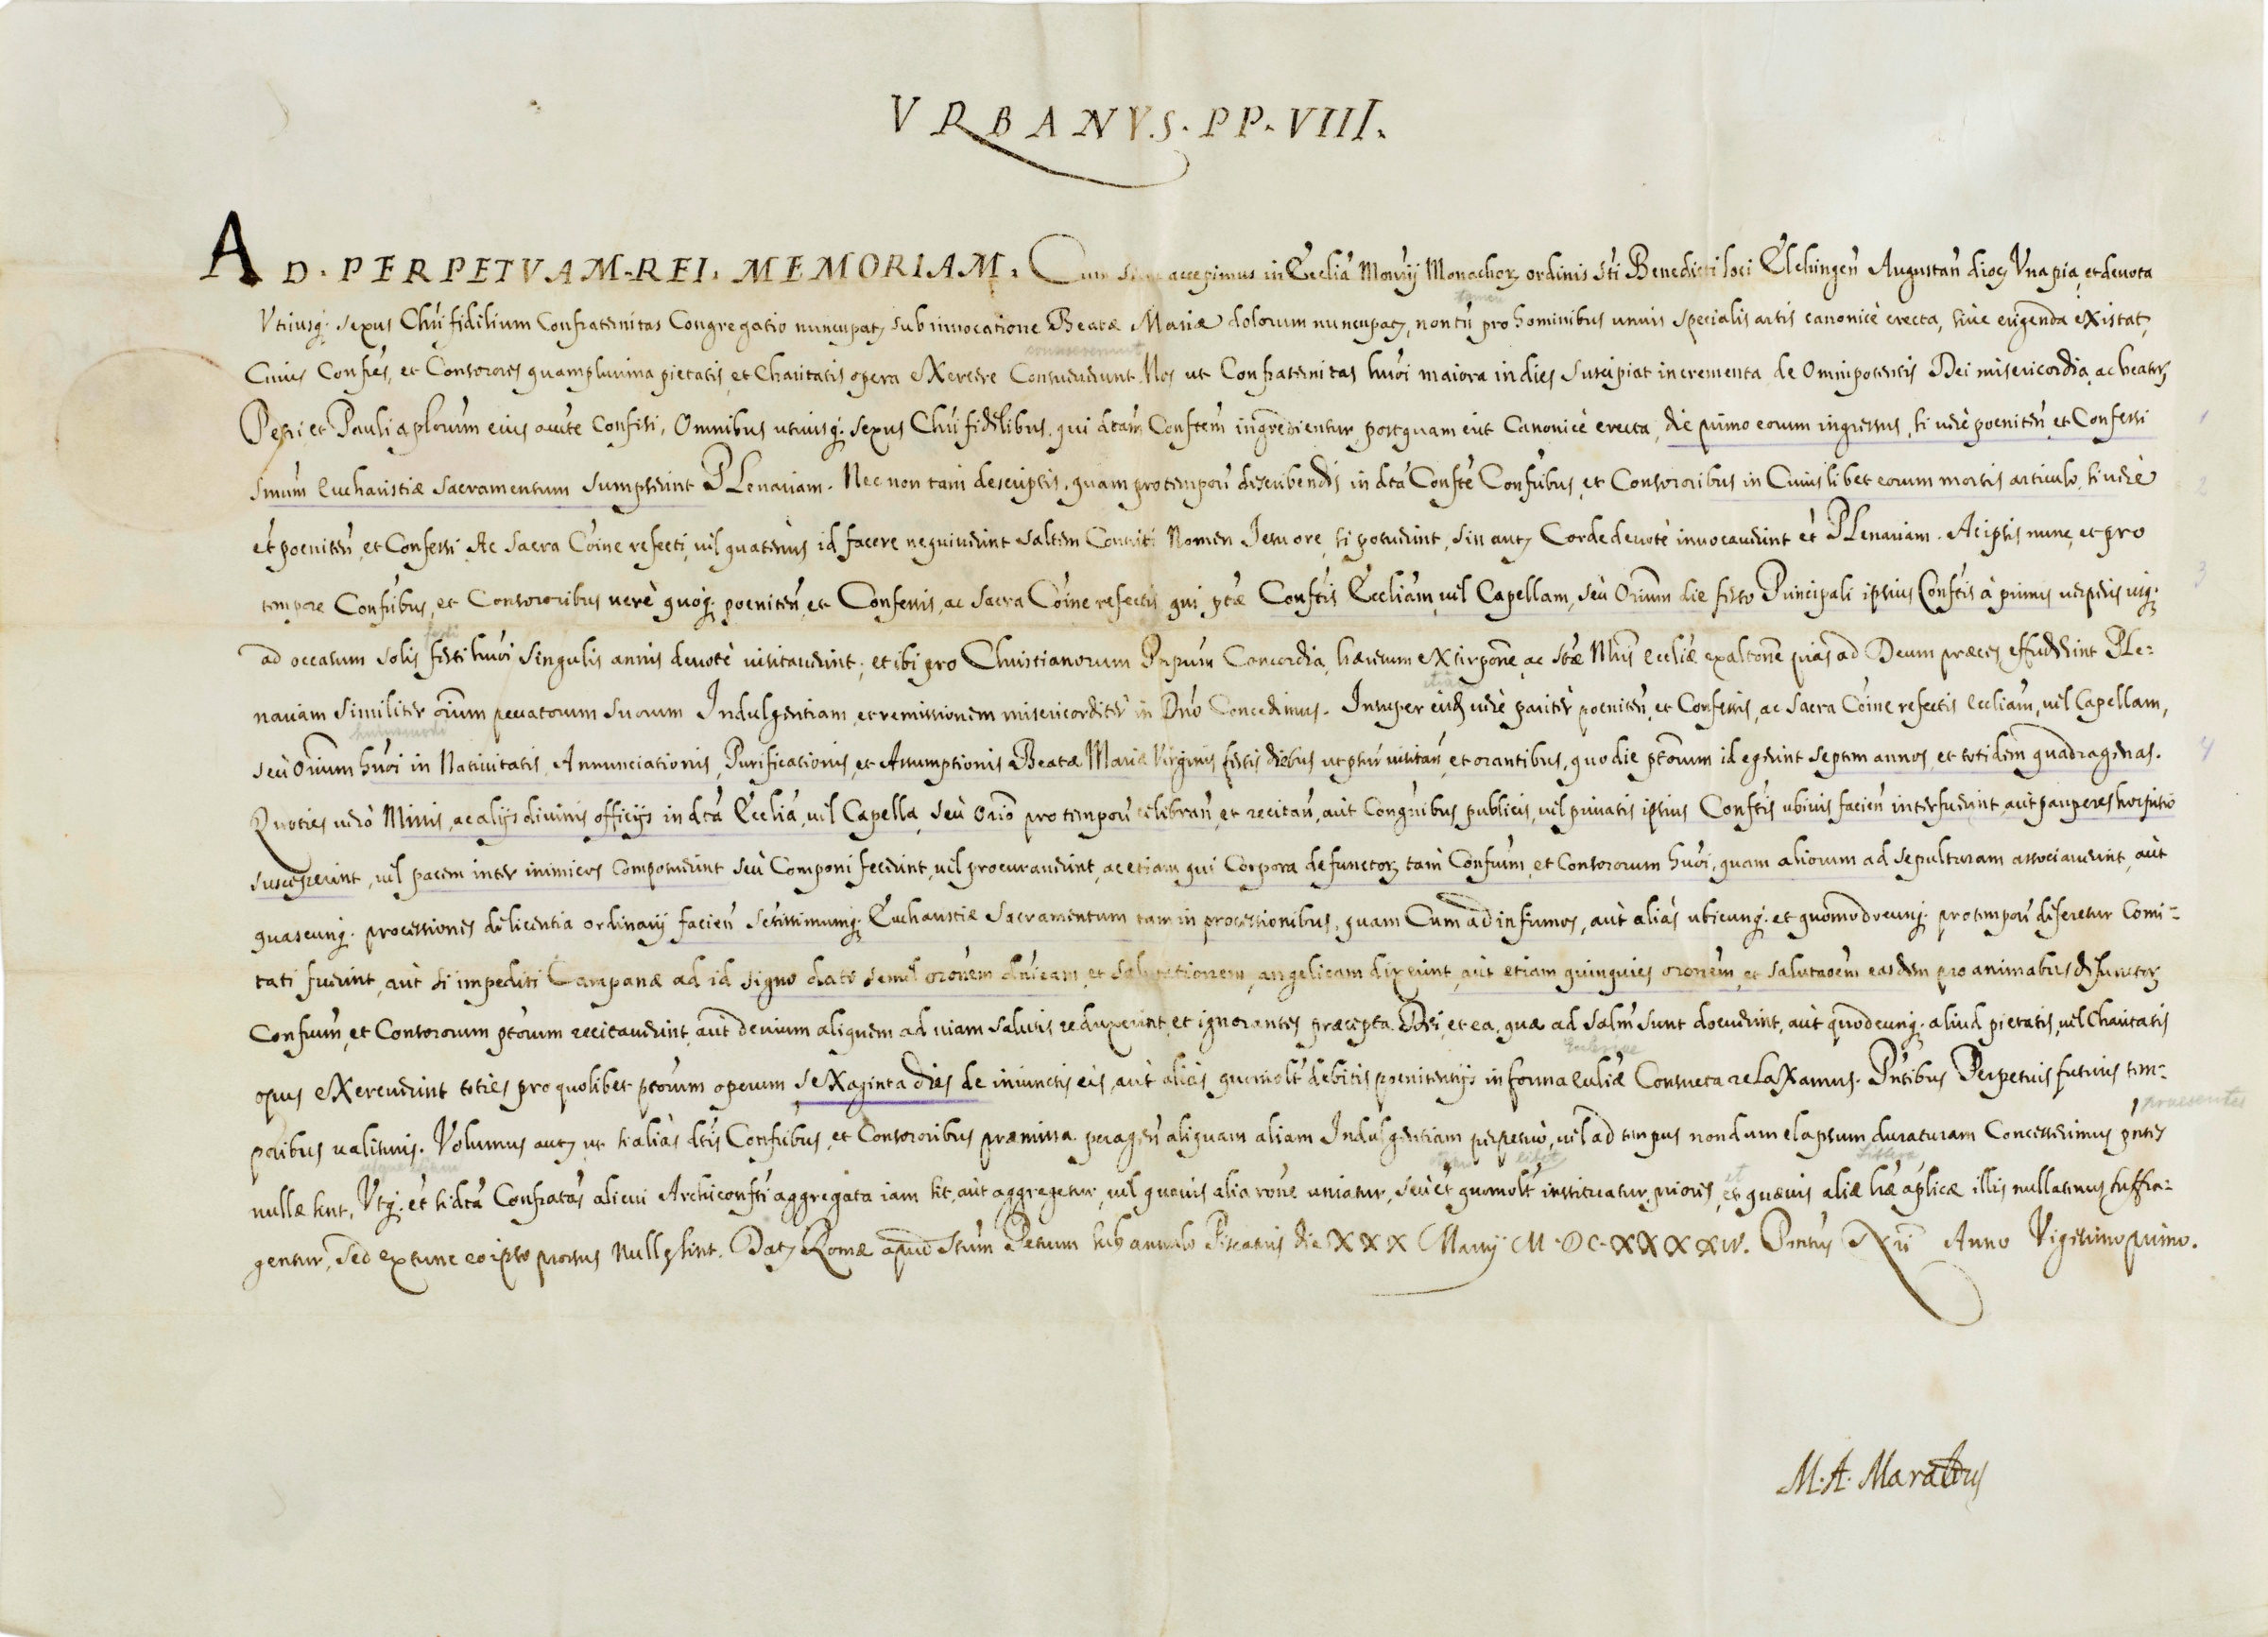 URBANVS. PP. VIII.
AD. PERPETVAM. REI. MEMORIAM. Cum accepimus in Ecclia Monrij Monachoz ordinis Sti Benedicti loci Elchingeñ Augustañ dioc Una pia, et deuota
Utriusq; sexus Chri fidelium Confraternitas Congregatio nuncupatz sub inuocatione Beatæ Mariæ dolorum nuncupatz, non tñ pro hominibus unius specialis artis canonicè erecta, siue erigenda existat,
tamen
Cuius Confres, et Consorores quamplurima pietatis, et Charitatis opera eXercere Consueuerunt. Nos ut Confraternitas huiõi maiora in dies suscipiat incrementa de Omnipotentis Dei misericordia, ac beatoz
consueverunt
Petri et Pauli aplorum eius aucte confisi, Omnibus utriusq; sexus Chri fidelibus, qui dtam Confrtem ingredientur, postquam erit Canonicè erecta, die primo eorum ingressus, si uerè poeniteñ et Confessi 1
Smum Eucharistiæ Sacramentum sumpserint PLenariam. Nec non tam descriptis, quam pro tempori describendis in dta Confrte Confribus, et Consororibus in Cuiuslibet eorum mortis articulo, si uerè 2
èt poeniteñ, et Confessi Ac Sacra Cõine refecti, uel quatenus id facere nequiuerint saltem Contriti Nomen Jesu ore, si potuerint, sin autz Corde deuotè inuocauerint èt PLenariam. Ac ipsis nunc, et pro
tempore Confribus, et Consororibus uerè quoq; poeniteñ, et Confessis, ac Sacra Cõine refectis, qui ptæ Confrtis Eccliam, uel Capellam, seù Orium die festo Principali ipsius Confrtis à primis uesperis usq; 3
ad occasum solis festi huiõi singulis annis deuotè uisitauerint, et ibi pro Christianorum Prpum Concordia, hæresum eXtirpone, ac Stæ Mris Eccliæ exaltone pias ad Deum præces effuderint PLe=
festi
nariam similiter oium peccatorum suorum Indulgentiam, et remissionem misericorditer in Dño Concedimus. Insuper eisdz uerè pariter poeniteñ, et Confessis, ac Sacra Cõine refectis Eccliam, uel Capellam,
etiam
seù Orium huiõi in Natiuitatis, Annunciationis, Purificationis, et Assumptionis Beatæ Mariæ Virginis festis diebus ut pfur uisitañ, et orantibus, quo die ptorum id egerint septem annos, et totidem quadragenas. 4
huiusmodi
Quoties uerò Missis, ac alijs diuinis officijs in dta Ecclia, uel Capella, seù Orio pro tempori celebrañ, et recitañ, aut Congnibus publicis, uel priuatis ipsius Confrtis ubiuis facieñ interfuerint, aut pauperes hospitio
susceperint, uel pacem inter inimicos composuerint seù Componi fecerint, uel procurauerint, ac etiam qui Corpora defunctoz tam Confrum, et Consororum huiõi, quam aliorum ad sepulturam associauerint, aut
quascunq; processiones de licentia ordinarij facieñ Setissimumq; Eucharistiæ Sacramentum tam in processionibus, quam Cum ad infirmos, aut aliàs ubicunq; et quomodocunq; pro tempori deferetur Comi=
tati fuerint, aut si impediti Campanæ ad id signo dato semel oronem dnicam, et salutationem angelicam dixerint, aut etiam quinquies oronem, et salutaoem easdem pro animabus defunctoz
Confrum, et Consororum ptorum recitauerint, aut deuium aliquem ad uiam salutis reduxerint, et ignorantes præcepta Dei, et ea, quæ ad salm sunt docuerint, aut quodcunq; aliud pietatis, uel Charitatis
opus eXercuerint toties pro quolibet ptorum operum seXaginta dies de iniunctis eis, aut aliàs quomolt debitis poenitentijs in forma Ecliæ Consueta reLaXamus. Pntibus Perpetuis futuris tem=
Ecclesiae
poribus ualituris. Volumus autz ut si aliàs dtis Confribus, et Consororibus præmissa peragen aliquam aliam Indulgentiam perpetuò, uel ad tempus nondum elapsum duraturam Concesserimus pntes
praesentes
nullæ sint. Utq; èt si dta Confratas alicui Archiconfrti aggregata iam sit, aut aggregetur, uel quauis alia rone uniatur, seù èt quomolt instituatur, priores, et quæuis aliæ Lræ aplicæ illis nullatenus suffra=
usque etiam etiam libet et littera
gentur, Sed ex tunc eo ipso prorsus Nullæ sint. Datz Romæ apud Stum Petrum sub annulo Piscatoris die XXX Martij M. DC. XXXXIV. Pontus Nri Anno Vigesimo primo.
M. A. Maraldus